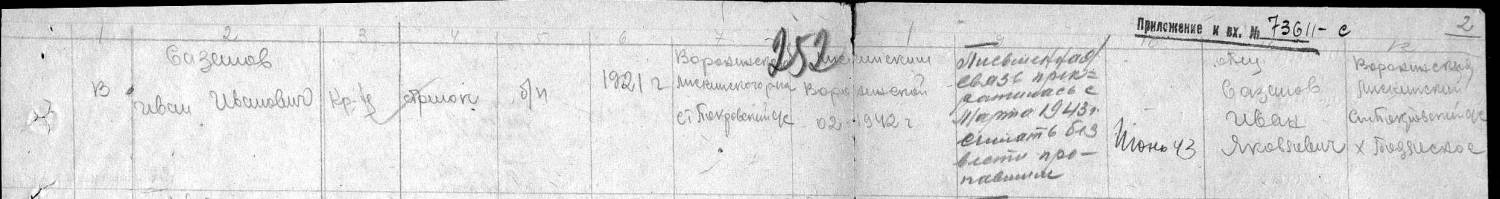 Приложение к вх. № 73611-с
2
1 2 3 4 5 6 7 1 9 10 12
252
В
Сазонов
Иван Иванович
Кр-ц
стрелок
б/п
1921 г
Воронежской
Лискинского р-на
ст. Покровский с/с
Лискинским
Воронежской
02 1942 г
Письменная
связь прек-
ратилась с
Марта 1943 г.
считать без
вести про-
павшим
Июнь 43
отец
Сазонов
Иван
Яковлевич
Воронежский
Лискинский